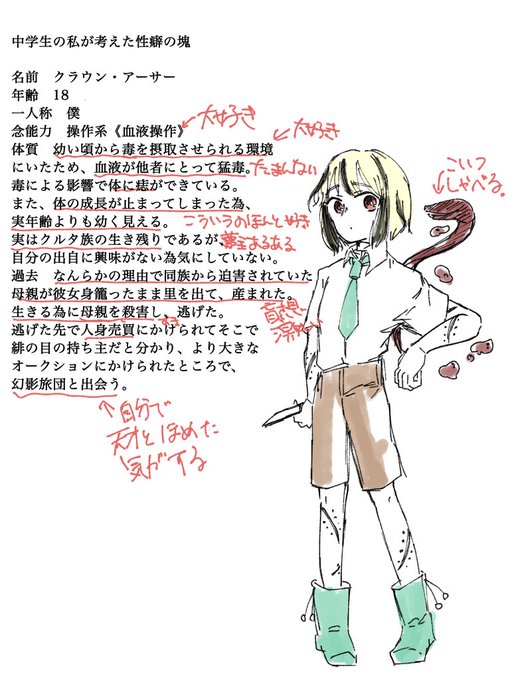 中学生の私が考えた性癖の塊
名前　クラウン・アーサー
年齢　18
一人称　僕
念能力　操作系《血液操作》
大好き
体質　幼い頃から毒を摂取させられる環境
大好き
にいたため、血液が他者にとって猛毒。
たまんない
毒による影響で体に痣ができている。
また、体の成長が止まってしまった為、
実年齢よりも幼く見える。
こういうのほんと好き
実はクルタ族の生き残りであるが、
夢主あるある
自分の出自に興味がない為気にしていない。
過去　なんらかの理由で同族から迫害されていた
母親が彼女身籠ったまま里を出て、産まれた。
生きる為に母親を殺害し、逃げた。
逃げた先で人身売買にかけられてそこで
緋の目の持ち主だと分かり、より大きな
オークションにかけられたところで、
幻影旅団と出会う。
自分で
天才とほめた
気がする
こいつ
しゃべる。